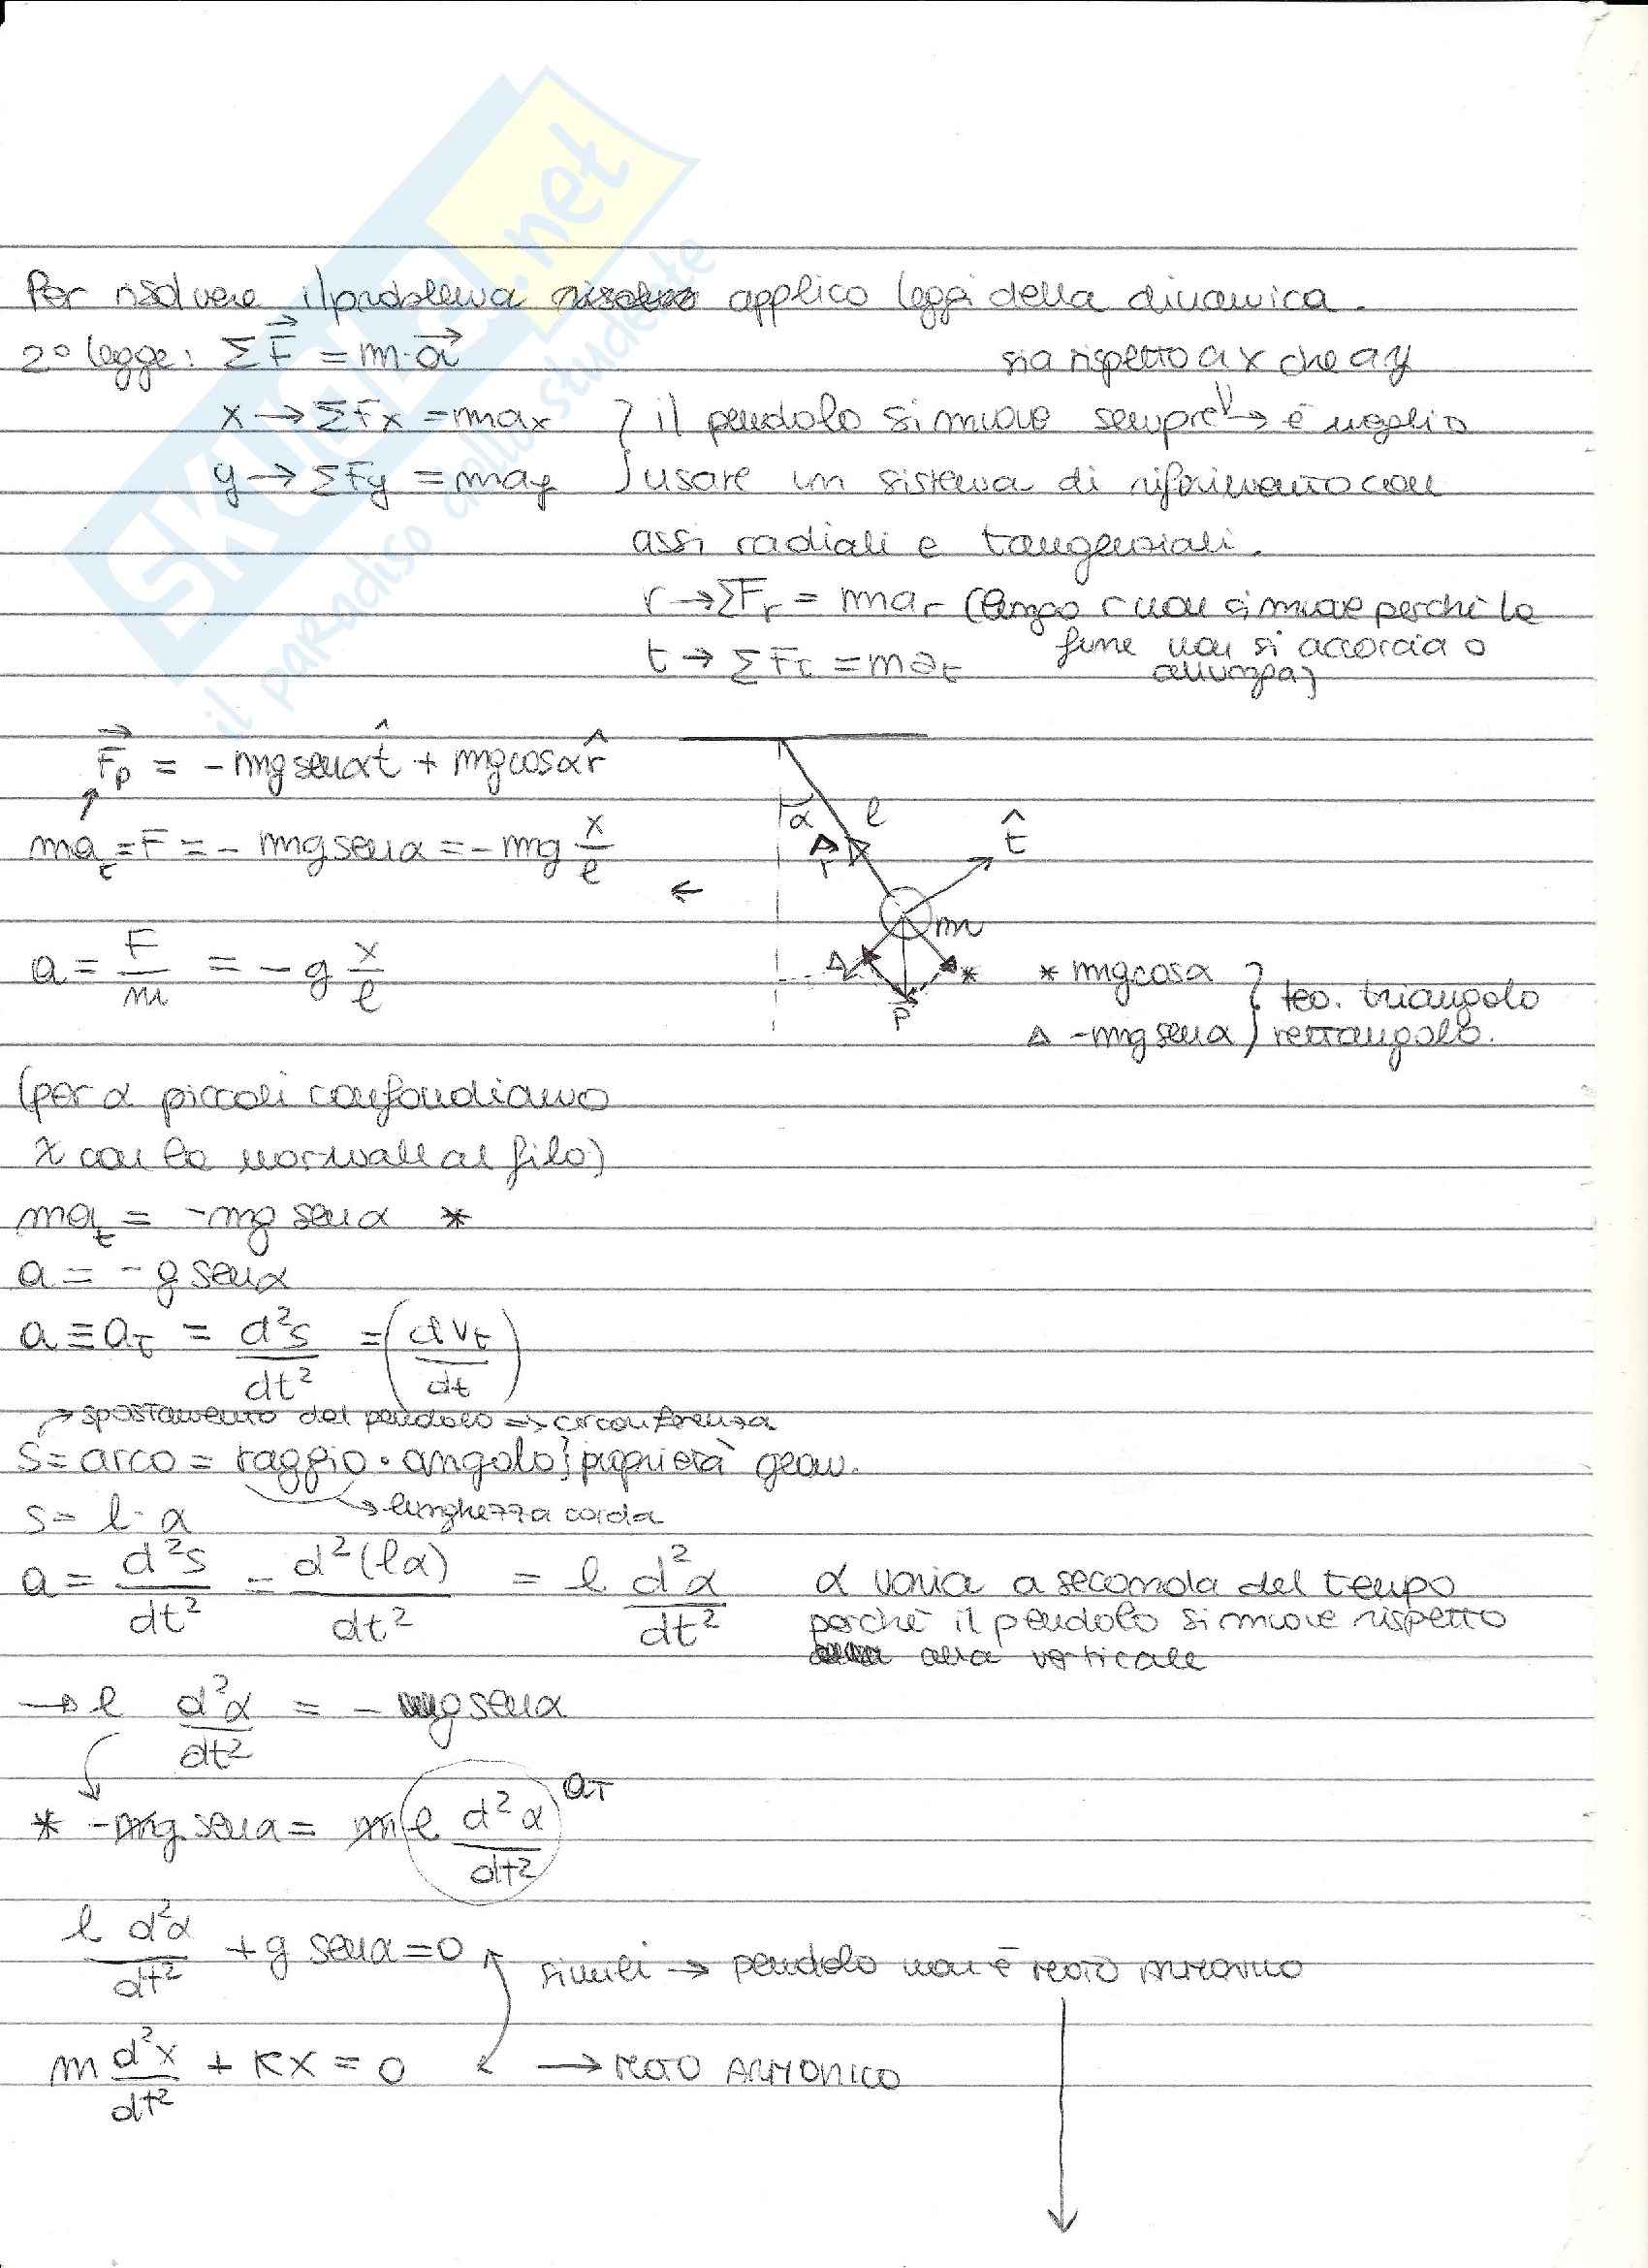 SKUOLA.net
il paradiso dello studente
Per risolvere il problema risolvo applico leggi della dinamica.
2° legge: ΣF⃗ = m·a⃗
sia rispetto a x che a y
x → ΣFx = max } il pendolo si muove sempre → è meglio
y → ΣFy = may } usare un sistema di riferimento con
assi radiali e tangenziali.
r → ΣFr = mar (lungo r non si muove perchè la
fune non si accorcia o
allunga)
t → ΣFt = mat
F⃗p = -mg senα t̂ + mg cosα r̂
mat = F = - mg senα = - mg x/l
a = F/m = - g x/l
α l r t̂ m
Δ * P
* mg cosα } teo. triangolo
Δ -mg senα } rettangolo.
(per α piccoli confondiamo
x con la normale al filo)
mat = -mg senα *
a = - g senα
a ≡ aT = d²s/dt² = (dvt/dt)
→ spostamento del pendolo => circonferenza
S = arco = raggio · angolo } proprietà geom.
→ lunghezza corda
s = l · α
a = d²s/dt² = d²(lα)/dt² = l d²α/dt² α varia a seconda del tempo
perchè il pendolo si muove rispetto
alla verticale
→ l d²α/dt² = - g senα
* -mg senα = m l d²α/dt² aT
l d²α/dt² + g senα = 0
simili → pendolo non è MOTO ARMONICO
m d²x/dt² + kx = 0 → MOTO ARMONICO